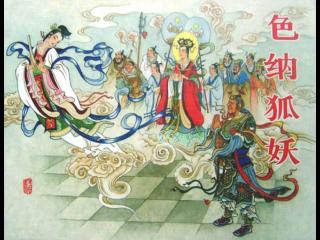 色纳狐妖